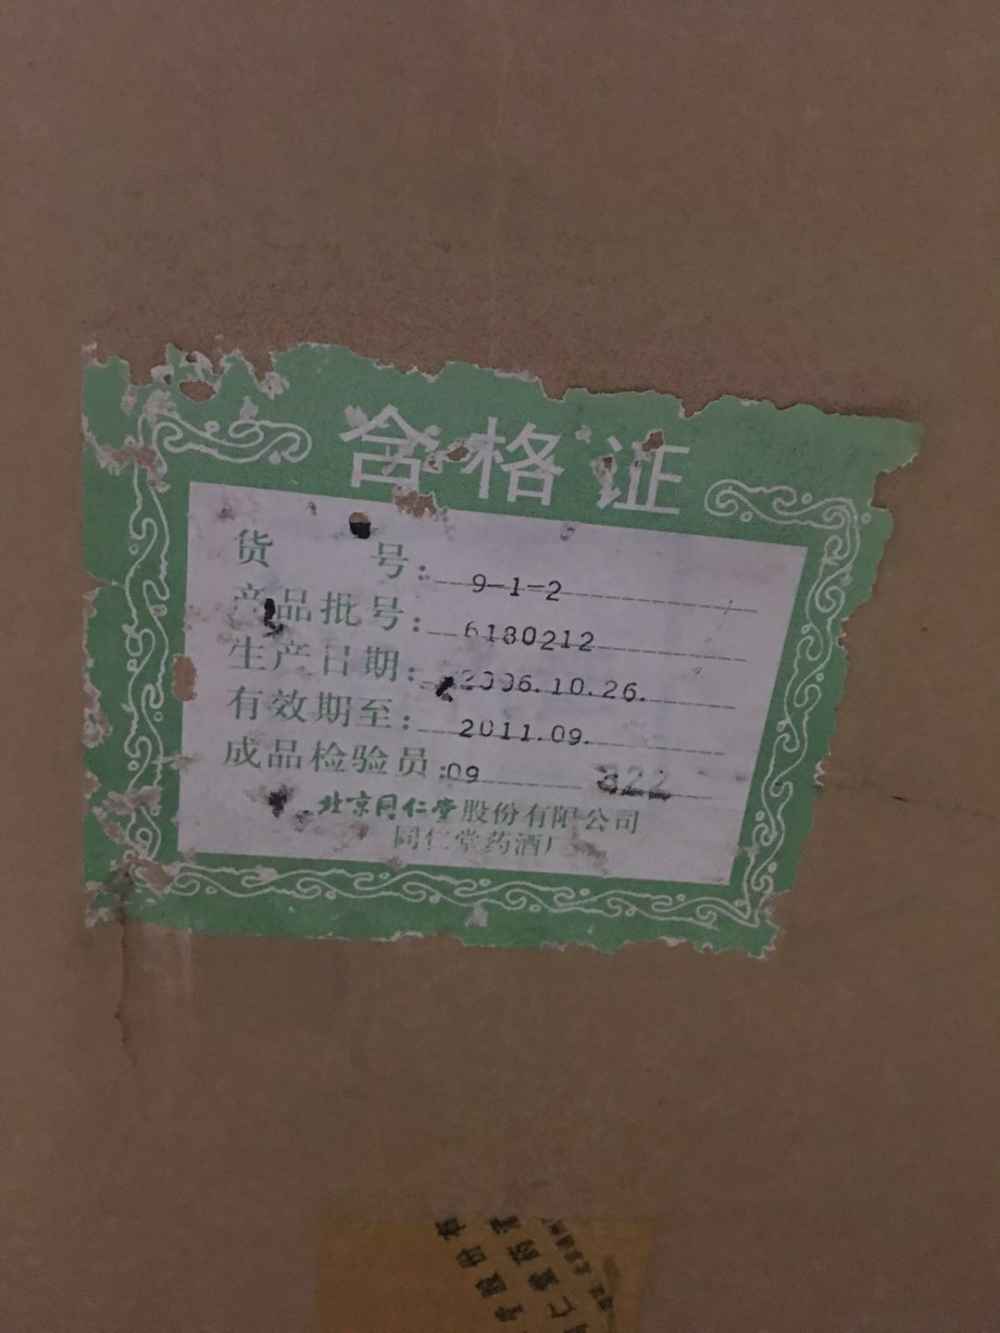 合格证
货 号: 9-1-2
产品批号: 6180212
生产日期: 2006.10.26.
有效期至: 2011.09.
成品检验员:09 822
北京同仁堂股份有限公司
同仁堂药酒厂
股份有
仁堂药酒